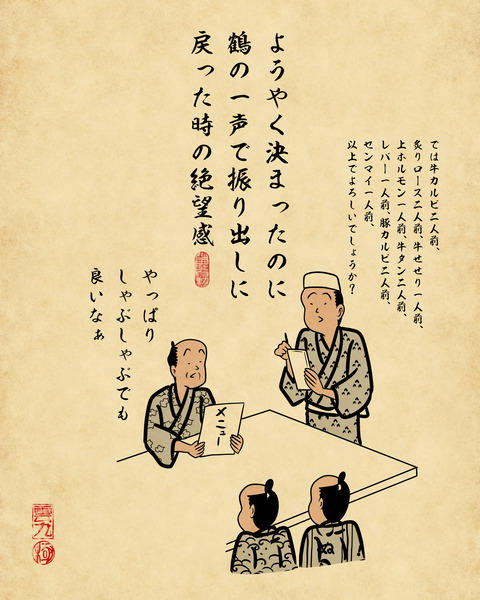 ようやく決まったのに
鶴の一声で振り出しに
戻った時の絶望感
では牛カルビ二人前、
炙りロース二人前、牛せせり一人前、
上ホルモン一人前、牛タン二人前、
レバー一人前、豚カルビ二人前、
センマイ一人前、
以上でよろしいでしょうか？
やっぱり
しゃぶしゃぶでも
良いなぁ
メニュー